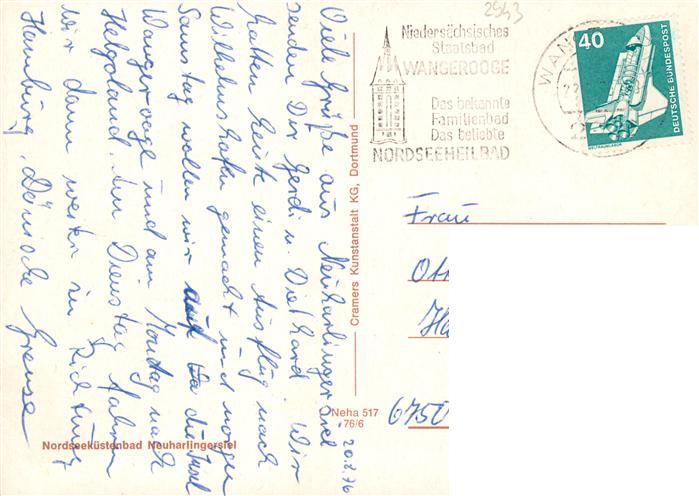 2543
Niedersächsisches
Staatsbad
WANGEROOGE
Das bekannte
Familienbad
Das beliebte
NORDSEEHEILBAD
WAN
40
DEUTSCHE BUNDESPOST
WELTRAUMLABOR
Viele Grüße aus Neuharlingersiel
senden Dir Gerd u. Diethard. Wir
hatten heute einen Ausflug nach
Wilhelmshafen gemacht und morgen
Samstag wollen wir auf die Insel
Wangerooge und am Montag nach
Helgoland. Am Dienstag fahren
wir dann weiter in Richtung
Hamburg, Dänische Grense
20.8.76
Cramers Kunstanstalt KG, Dortmund
Neha 517
76/6
Nordseeküstenbad Neuharlingersiel
Frau
6750